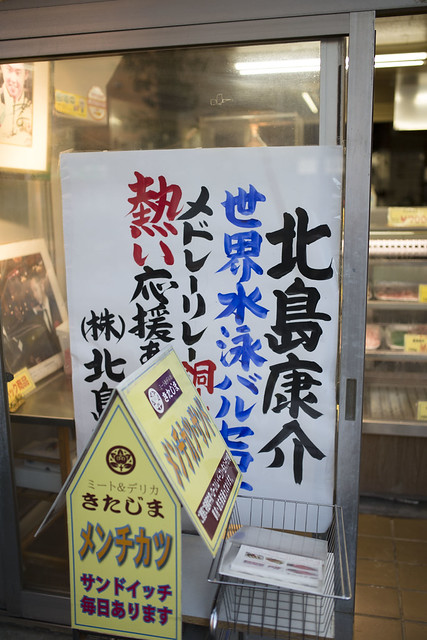 北島康介
世界水泳バルセロ
メドレーリレー銅
熱い応援あ
(株)北島
きたじま
メンチカツ
ミート&デリカ
きたじま
メンチカツ
サンドイッチ
毎日あります